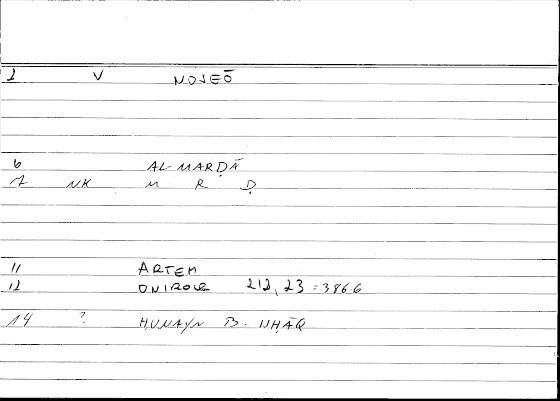 2 V NOSEŌ
6 AL-MARḌĀ
7 NK M R Ḍ
11 ARTEM
12 ONIROCR 212,23 = 386.6
14 ? ḤUNAYN B. ISḤĀQ